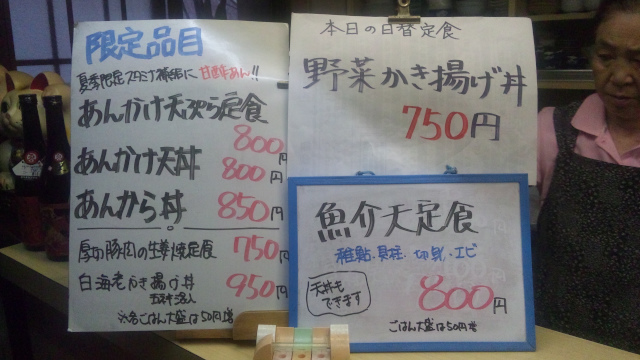 限定品目
夏季限定 スタミナ補給に 甘酢あん!!
あんかけ天ぷら定食
800円
あんかけ天丼 800円
あんから丼 850円
厚切豚肉の生姜焼定食 750円
白海老かき揚げ丼 950円
※各ごはん大盛は50円増
本日の日替定食
野菜かき揚げ丼
750円
魚介天定食
稚鮎・貝柱・切身・エビ
天丼も
できます
800円
ごはん大盛は50円増